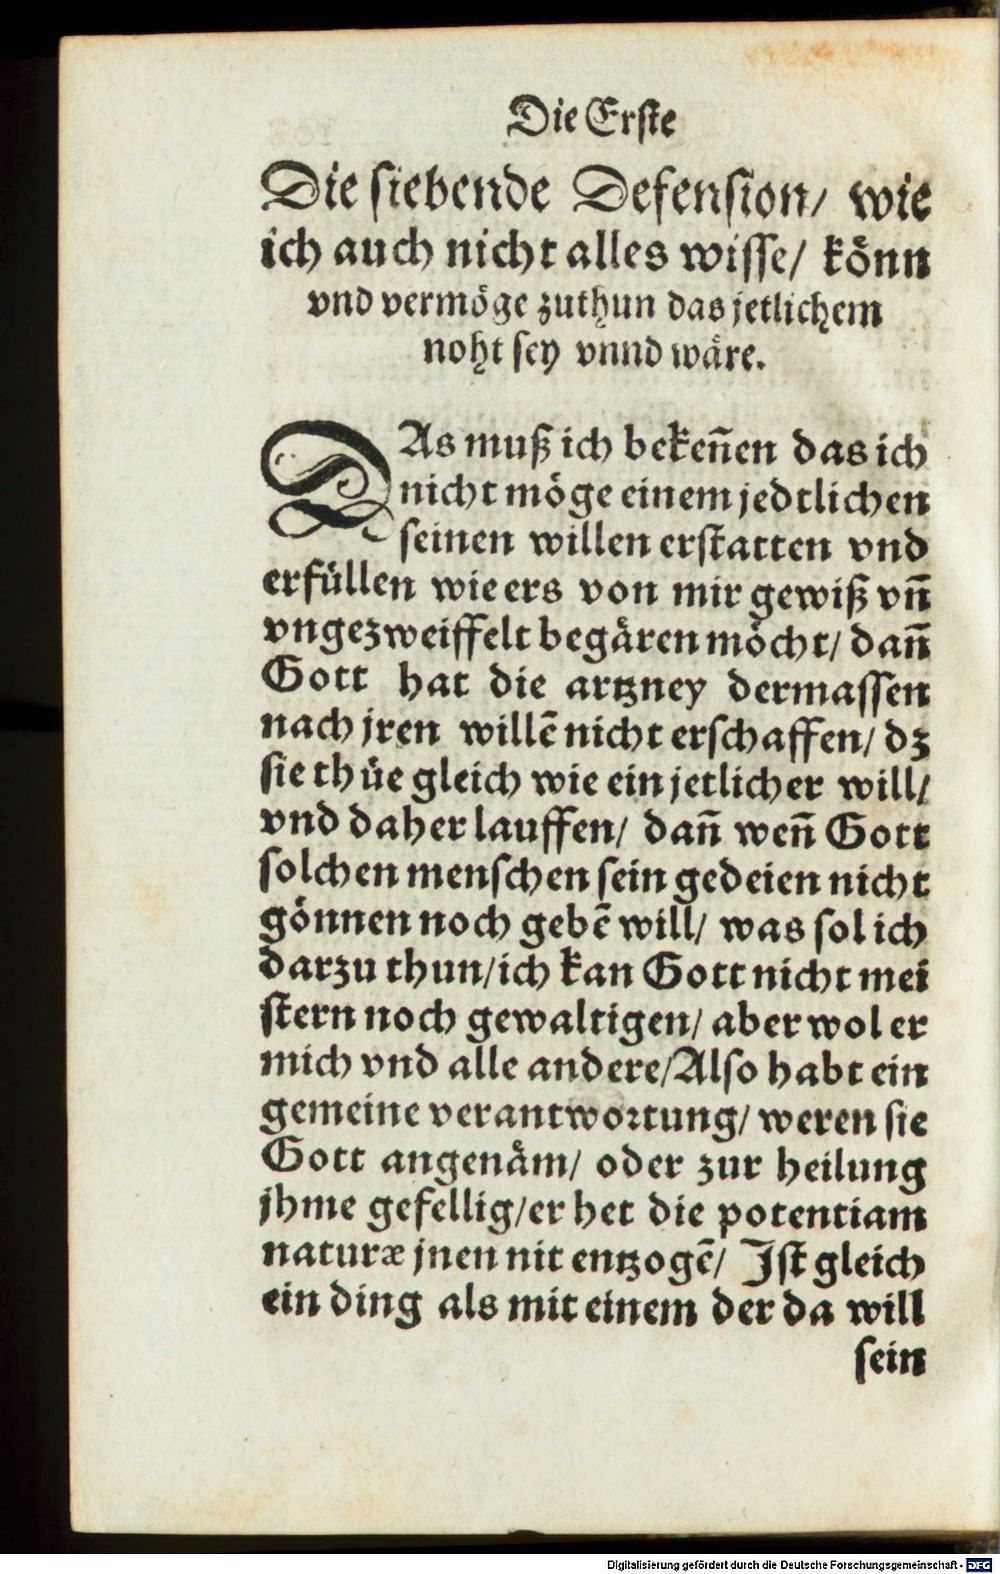 Die Erste
Die siebende Defension/ wie
ich auch nicht alles wisse/ könn
vnd vermöge zuthun das jetlichem
noht sey vnnd wäre.
DAs muß ich bekeñen das ich
nicht möge einem jedtlichen
seinen willen erstatten vnd
erfüllen wie ers von mir gewiß vñ
vngezweiffelt begären möcht/ dañ
Gott hat die artzney dermassen
nach jren willē nicht erschaffen/ dz
sie thüe gleich wie ein jetlicher will/
vnd daher lauffen/ dañ weñ Gott
solchen menschen sein gedeien nicht
gönnen noch gebē will/ was sol ich
darzu thun/ich kan Gott nicht mei
stern noch gewaltigen/ aber wol er
mich vnd alle andere/Also habt ein
gemeine verantwortung/ weren sie
Gott angenäm/ oder zur heilung
jhme gefellig/er het die potentiam
naturæ jnen nit entzogē/ Ist gleich
ein ding als mit einem der da will
sein
Digitalisierung gefördert durch die Deutsche Forschungsgemeinschaft - DFG